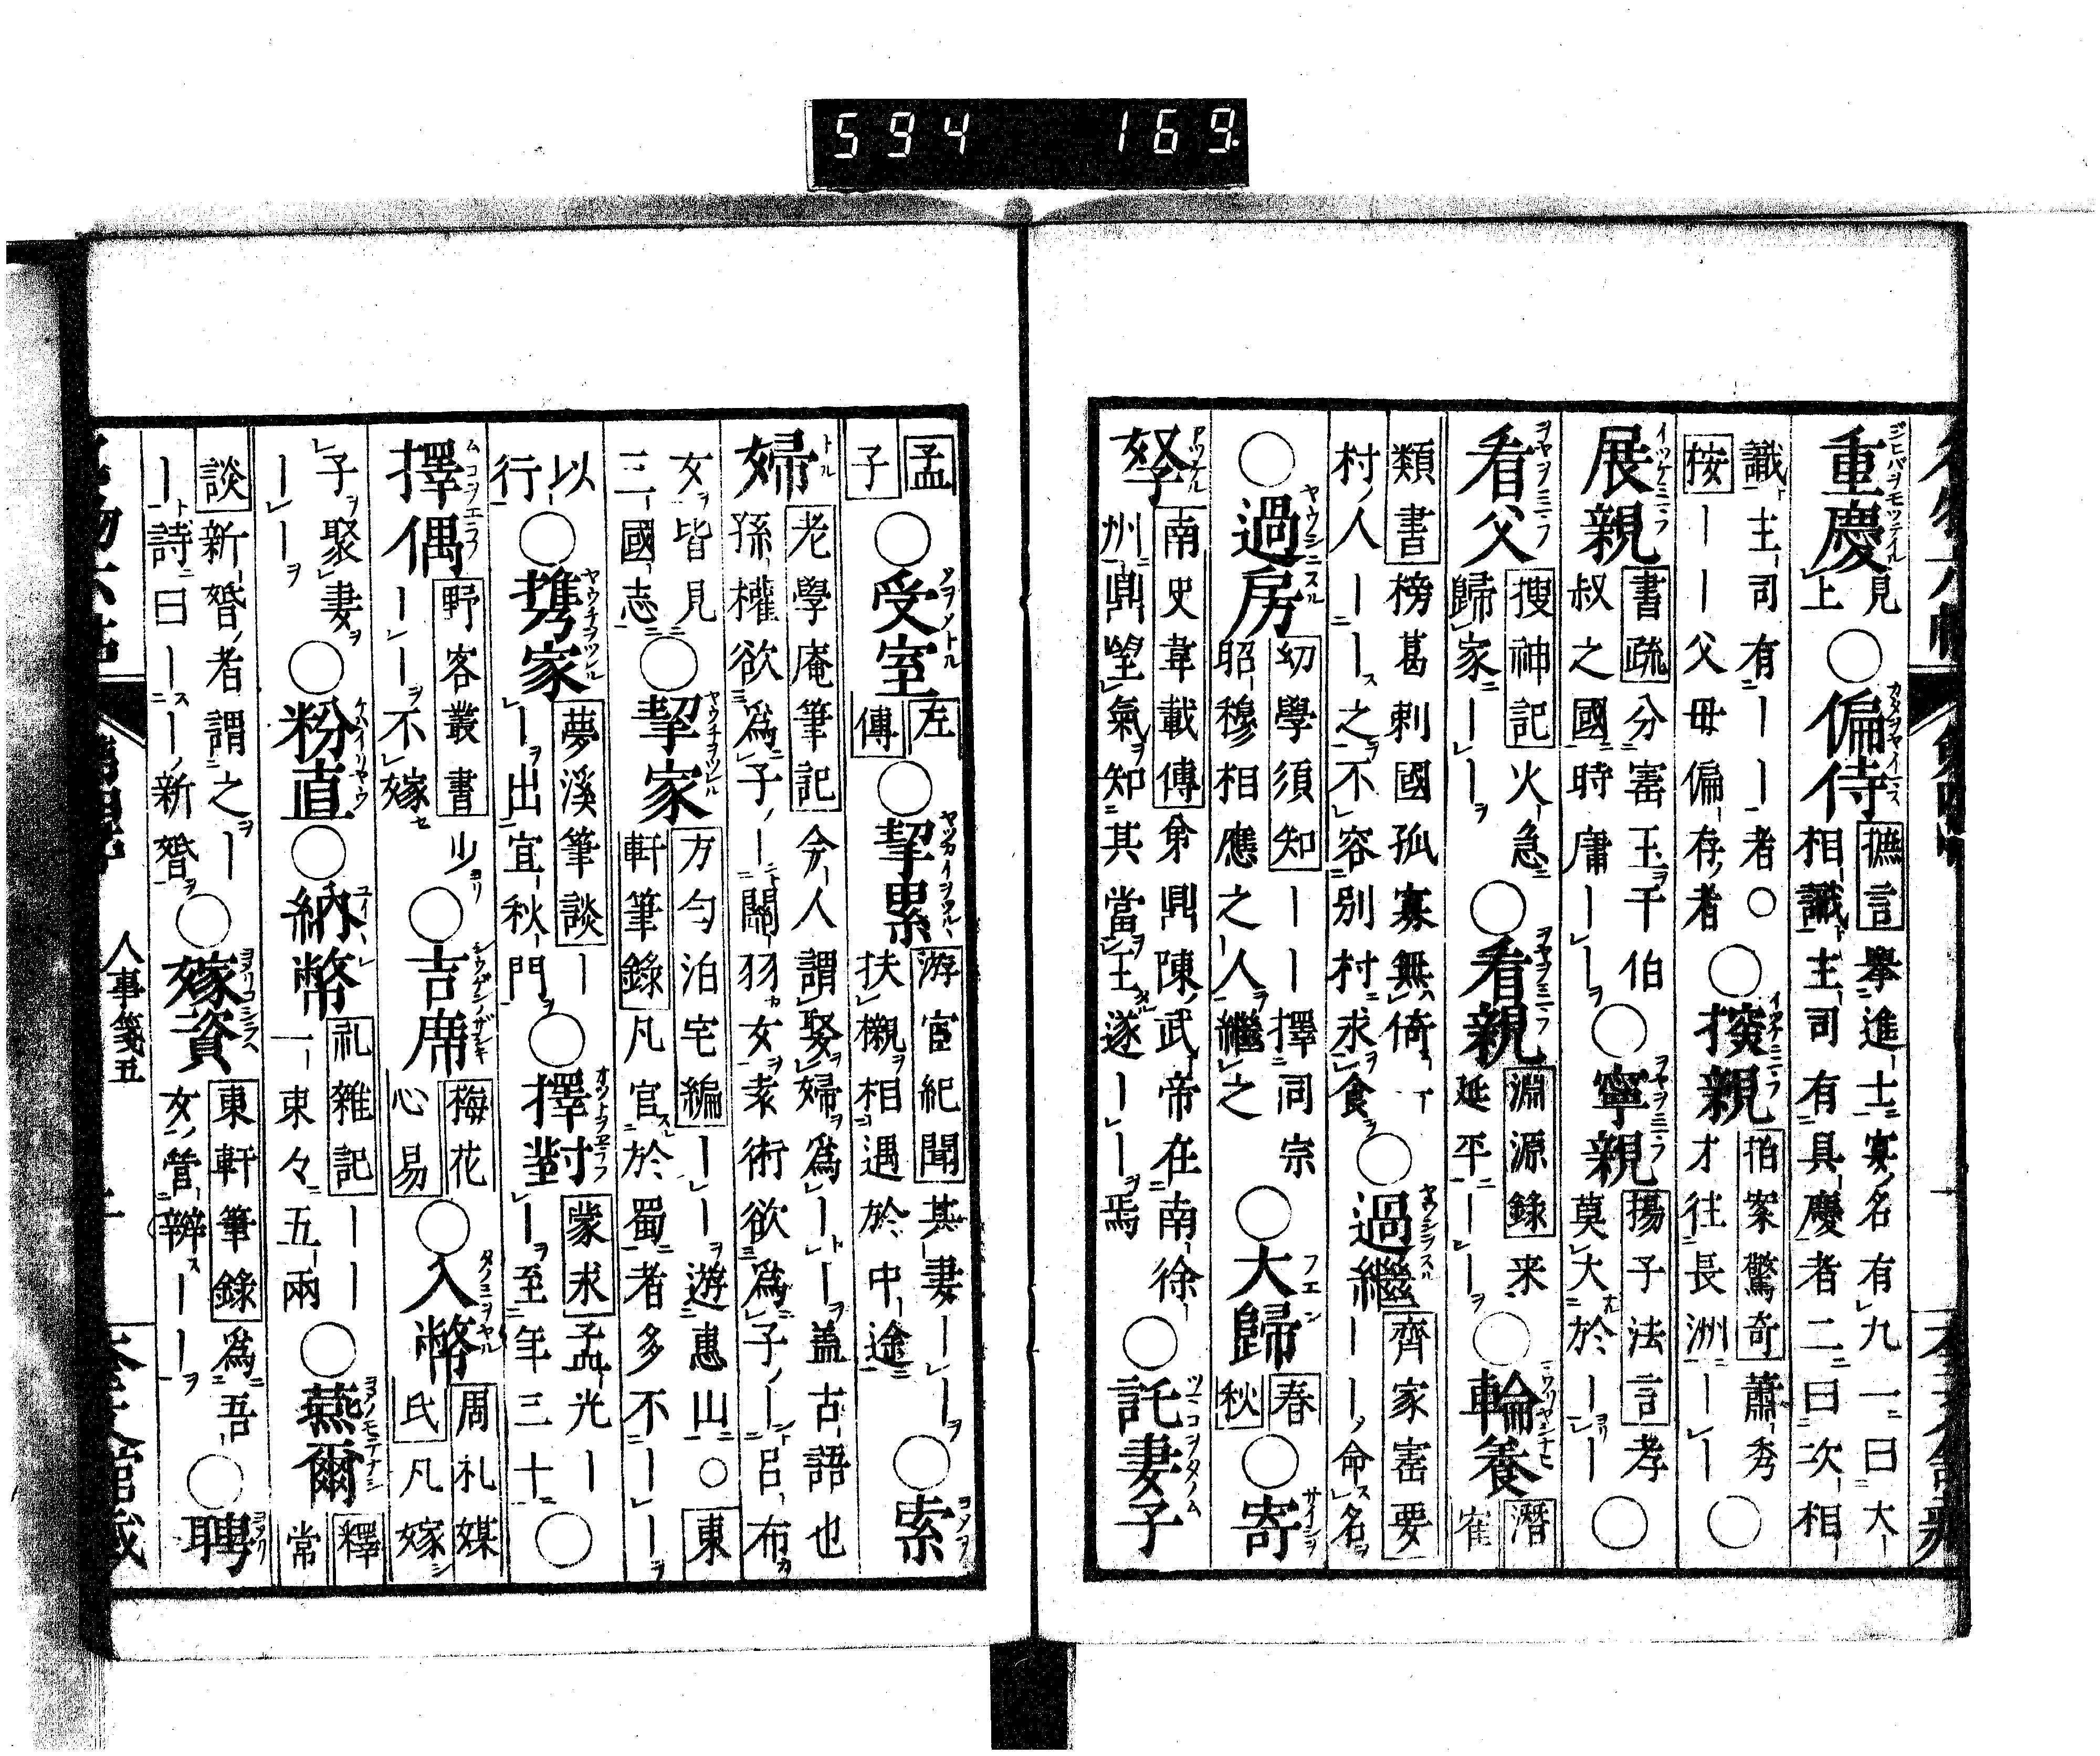 594 169.
重慶 見上 ○偏侍 摭言 擧進士宴名有九一曰大相識主司有具慶者二曰次相
識主司有ーー者○按ーー父母偏存者 ○擡親 拍案驚奇 蕭秀才往長洲ーー ○
展親 書疏 分寳玉于伯叔之國時庸ーー ○寧親 揚子法言 孝莫大於ーー ○
看父 搜神記 火急歸家ーー ○看親 淵源錄 来延平ーー ○輪養 潛雀
類書 榜葛剌國孤寡無倚一村人ーー之不容別村求食 ○過繼 齊家寳要 ーー命名
○過房 幼學須知 ーー擇同宗昭穆相應之人繼之 ○大歸 春秋 ○寄
孥 南史韋載傳 弟鼎陳武帝在南徐州鼎望氣知其當王遂ーー焉 ○託妻子
孟子 ○受室 左傳 ○挈累 游宦紀聞 其妻ーー扶櫬相遇於中途 ○索
婦 老學庵筆記 今人謂娶婦爲ーー盖古語也孫權欲爲子ー關羽女袁術欲爲子ー呂布
女皆見三國志 ○挈家 方勺泊宅編 ーー遊惠山○東軒筆錄 凡官於蜀者多不ーー
以行 ○攜家 夢溪筆談 ーー出宜秋門 ○擇對 蒙求 孟光ーー至年三十 ○
擇偶 野客叢書 少ーー不嫁 ○吉席 梅花心易 ○入幣 周礼媒氏 凡嫁
子聚妻ーー ○粉直 ○納幣 礼雜記 ーー一束々五兩 ○燕爾 釋常
談 新婚者謂之ーー詩曰ーー新婚 ○嫁資 東軒筆錄 爲吾女營辦ーー ○聘
人事箋五